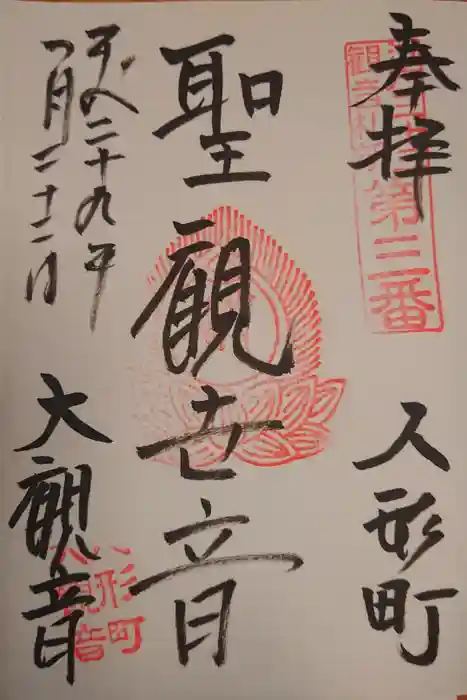 奉拝
第三番
人形町
聖観世音
平成二十九年
一月二十二日
大観音
人形町
大観音